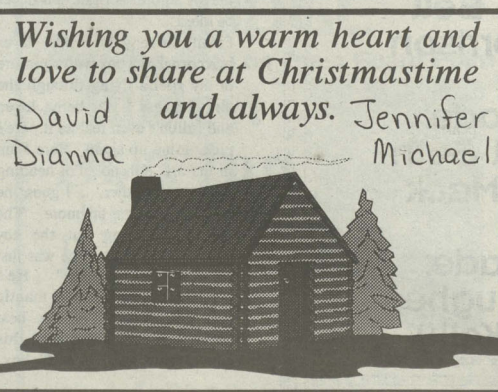 Wishing you a warm heart and
love to share at Christmastime
and always.
David
Dianna
Jennifer
Michael